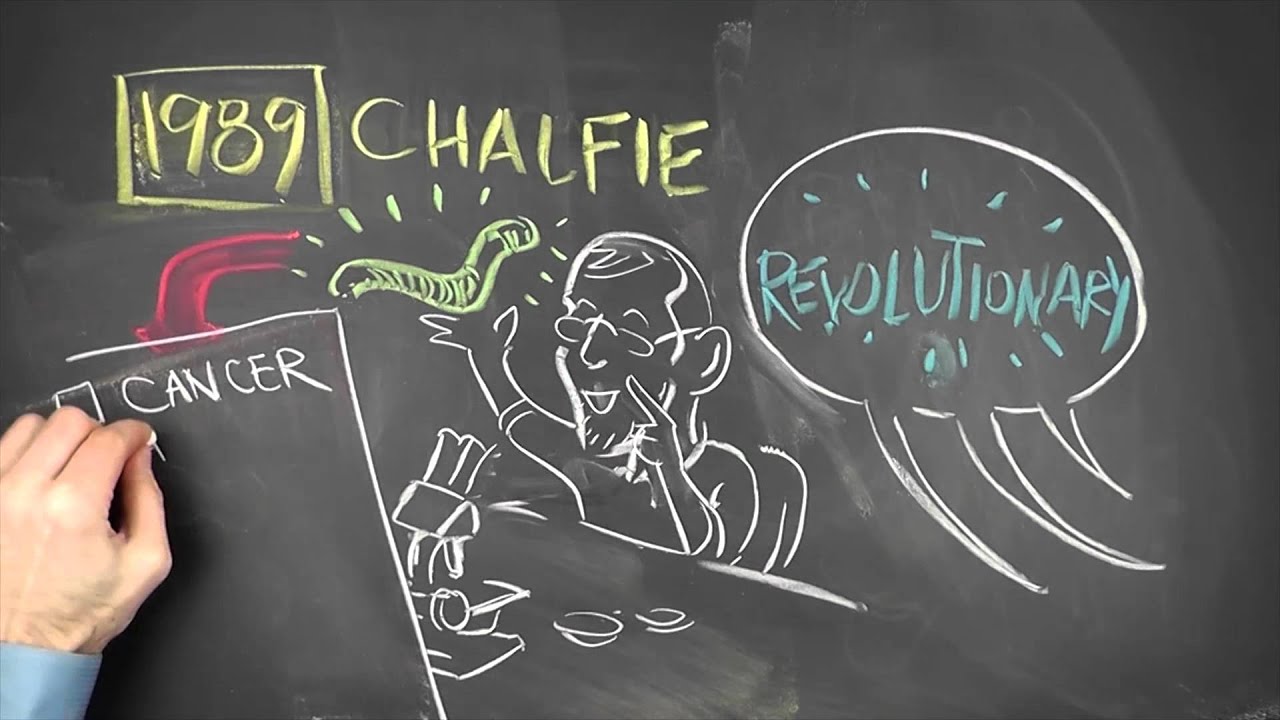 1989 CHALFIE
REVOLUTIONARY
CANCER